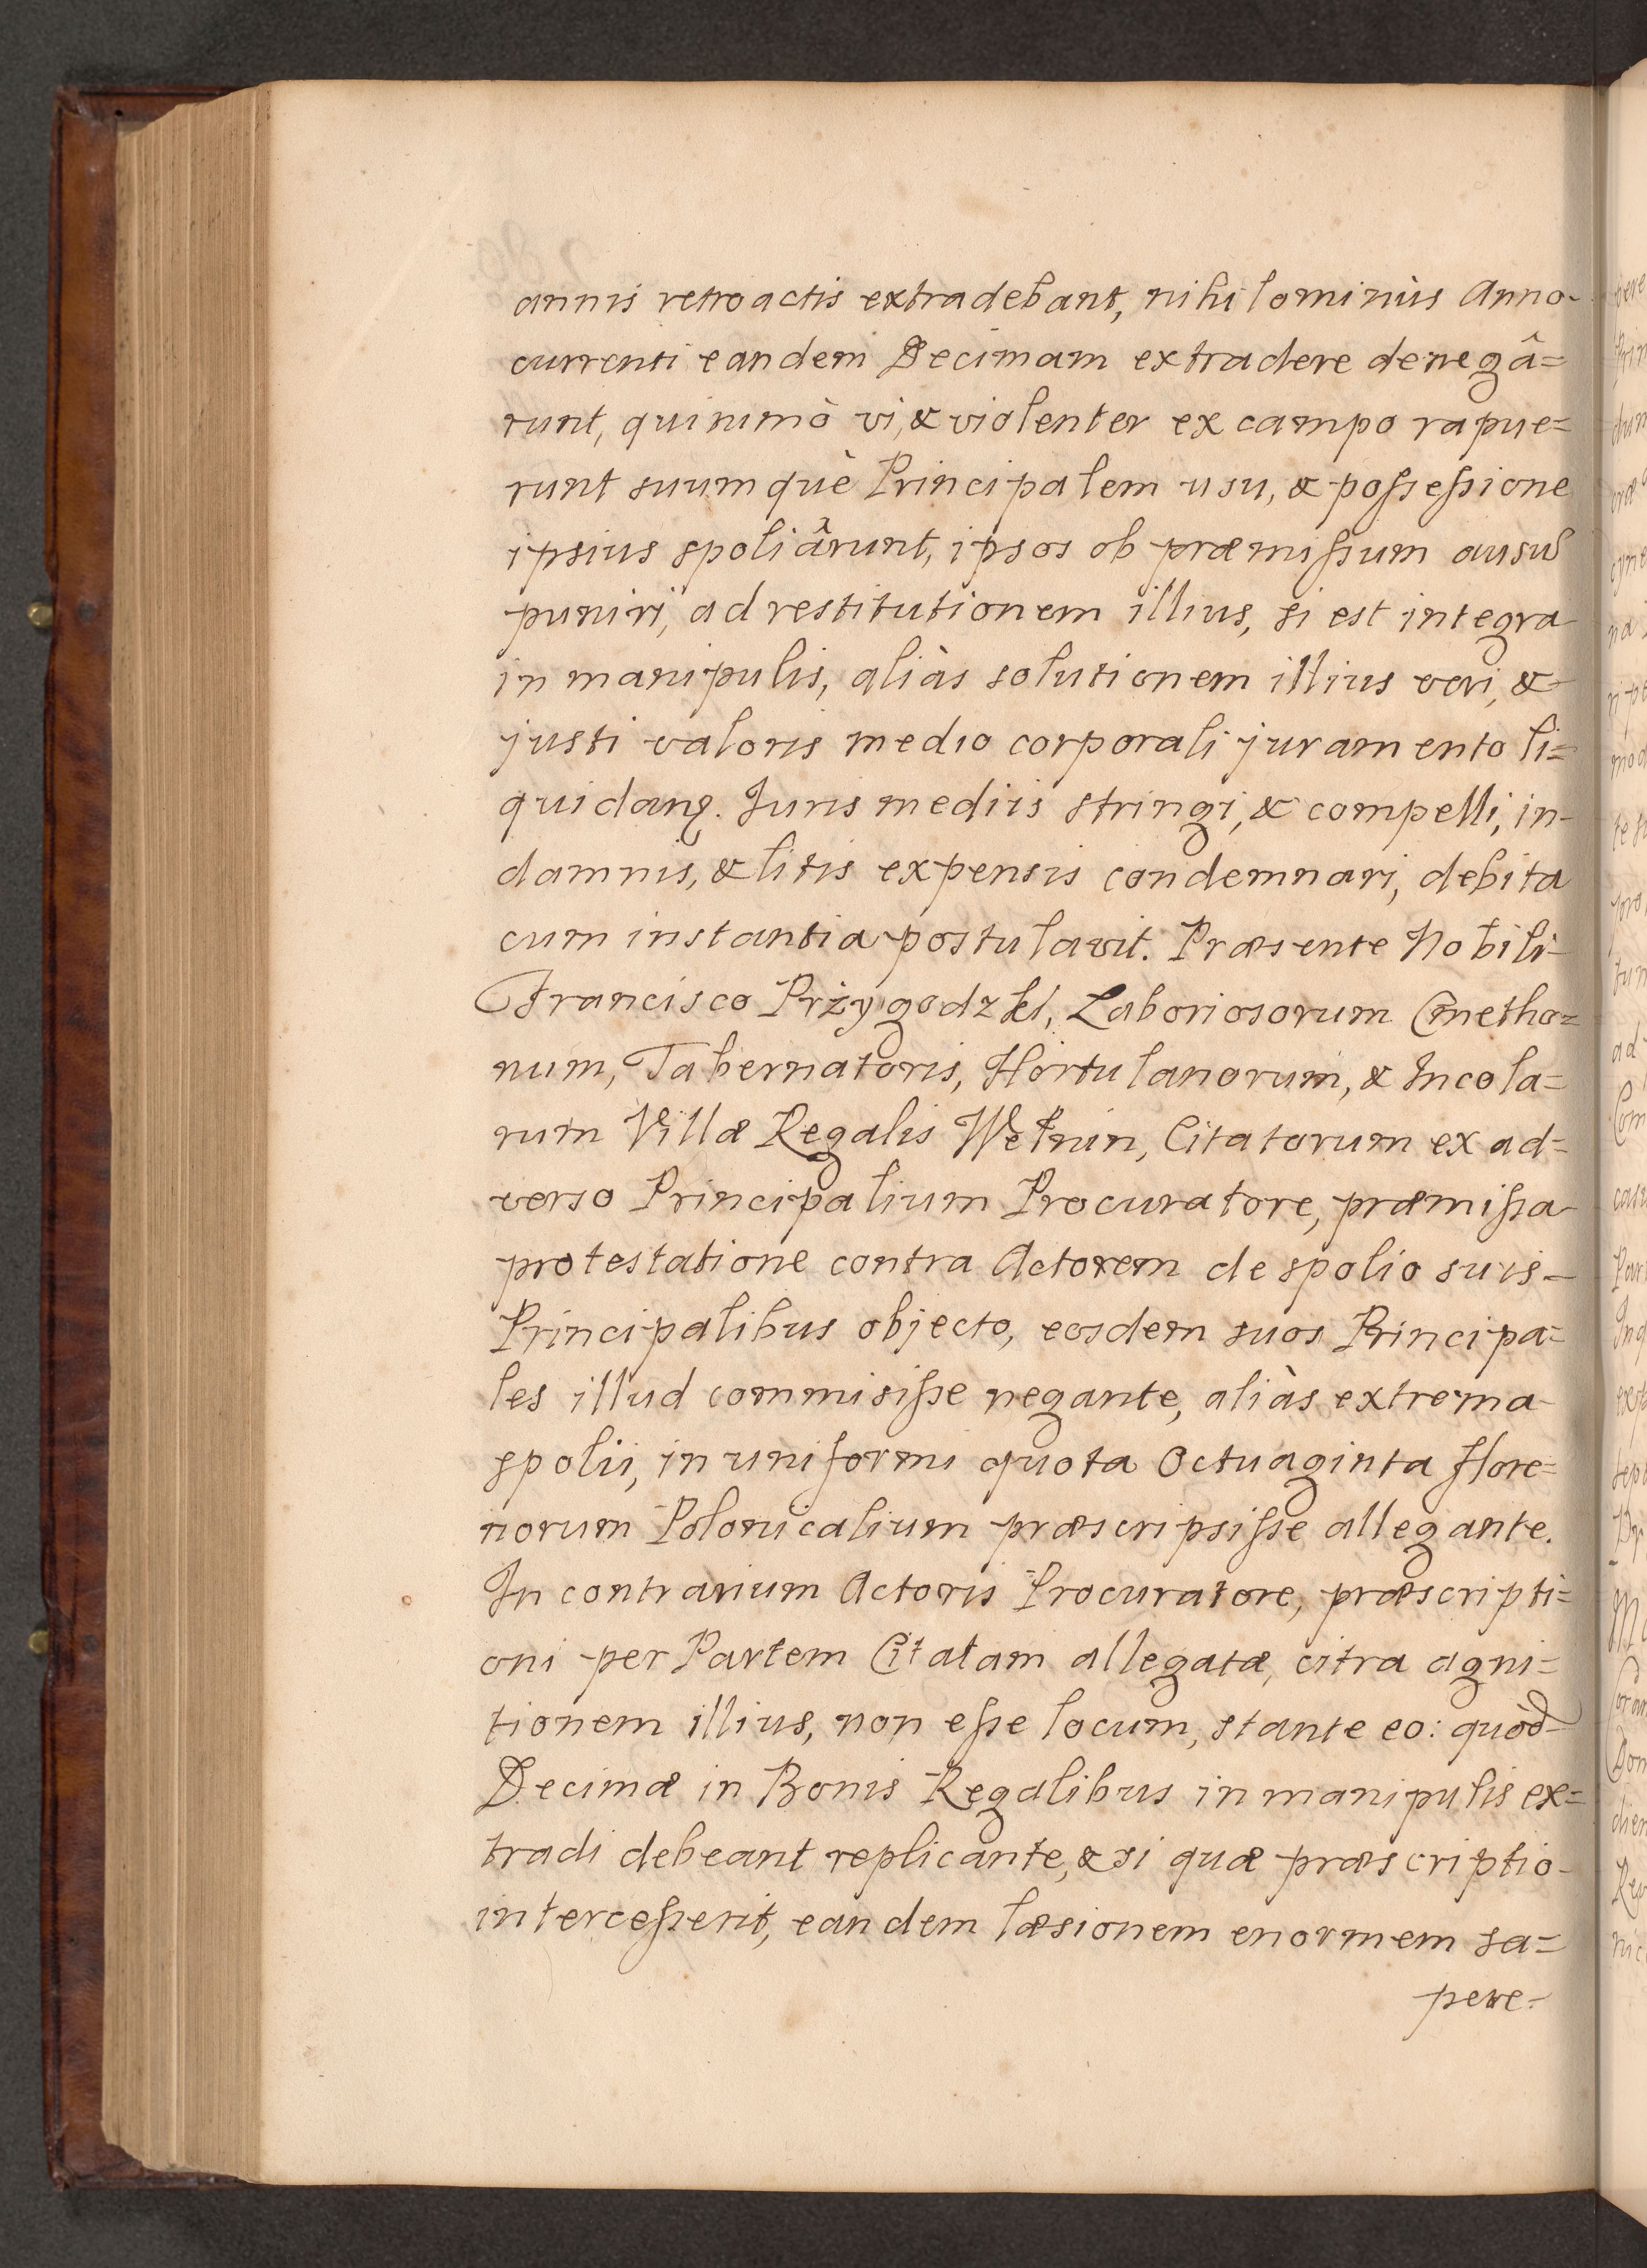 annis retroactis extradebant, nihilominùs Anno
currenti eandem Decimam extradere denegâ=
runt, quinimò vi, & violenter ex campo rapue=
runt suumquè Principalem usu, & poſseſsione
ipsius spoliârunt, ipsos ob præmiſsum ausus
puniri, ad restitutionem illius, si est integra
in manipulis, aliàs solutionem illius veri, &
justi valoris medio corporali juramento li=
quidanꝫ. Juris mediis stringi, & compelli, in
damnis, & litis expensis condemnari, debita
cum instantia postulavit. Præsente Nobili
Francisco Pržygodzki, Laboriosorum Cmetho=
num, Tabernatoris, Hortulanorum, & Incola=
rum Villæ Regalis Wełnin, Citatorum ex ad=
verso Principalium Procuratore, præmiſsa
protestatione contra Actorem de spolio suis
Principalibus objecto, eosdem suos Principa=
les illud commisiſse negante, aliàs extrema
spolii, in uniformi quota Octuaginta flore=
norum Polonicalium præscripsiſse allegante.
In contrarium Actoris Procuratore, præscripti=
oni per Partem Citatam allegatæ, citra agni=
tionem illius, non eſse locum, stante eo: quòd
Decimæ in Bonis Regalibus in manipulis ex=
tradi debeant replicante, & si quæ præscriptio
interceſserit, eandem læsionem enormem sa=
pere